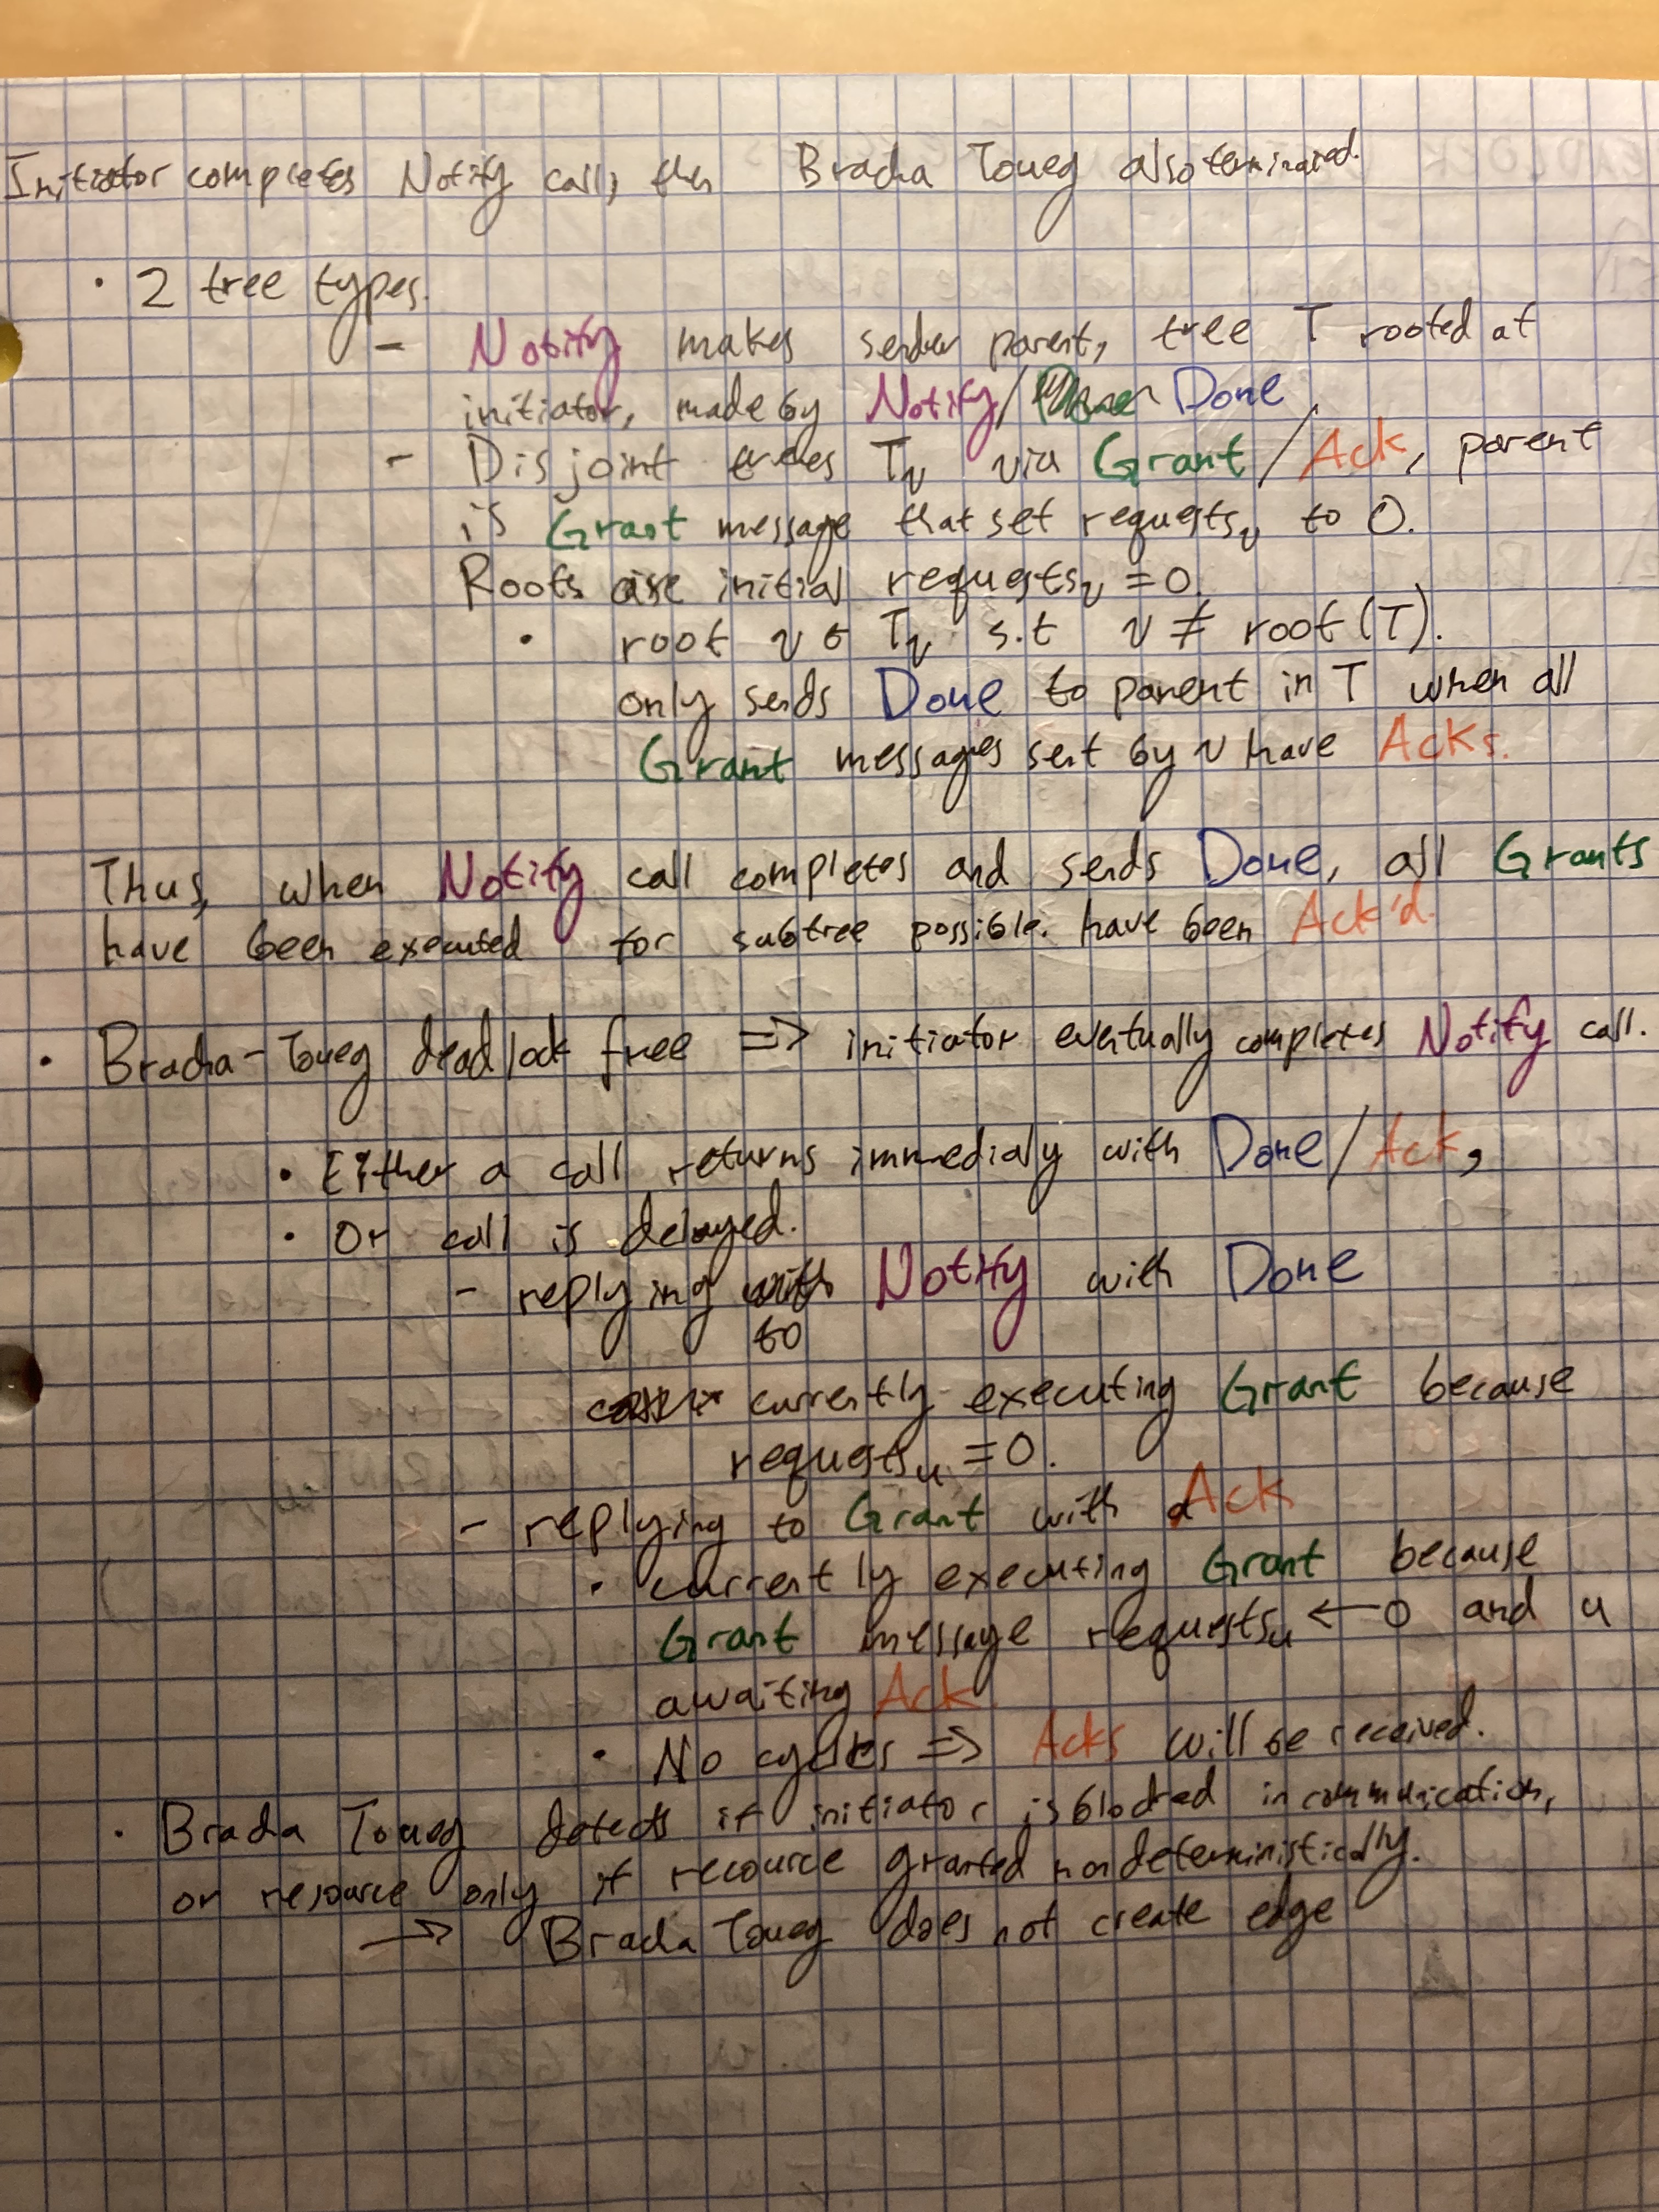 Initiator completes Notify call, then Bracha Toueg also terminated.
• 2 tree types.
- Notify makes sender parent, tree T rooted at
initiator, made by Notify/ Done
- Disjoint trees Tv via Grant/Ack, parent
is Grant message that set requestsv to 0.
Roots are initial requestsv = 0.
• root v of Tv s.t v ≠ root(T).
only sends Done to parent in T when all
Grant messages sent by v have Acks.
Thus, when Notify call completes and sends Done, all Grants
have been executed for subtree possible. have been Ack'd.
• Bracha-Toueg deadlock free => initiator eventually completes Notify call.
• Either a call returns immedialy with Done/Ack,
• Or call is delayed.
- replying to Notify with Done
currently executing Grant because
requestsu = 0.
- replying to Grant with Ack
• currently executing Grant because
Grant message requestsu ← 0 and u
awaiting Ack
• No cycles => Acks will be received.
• Bracha Toueg detects if initiator is blocked in communication,
or resource only if recource granted nondeterministically.
→ Bracha Toueg does not create edge